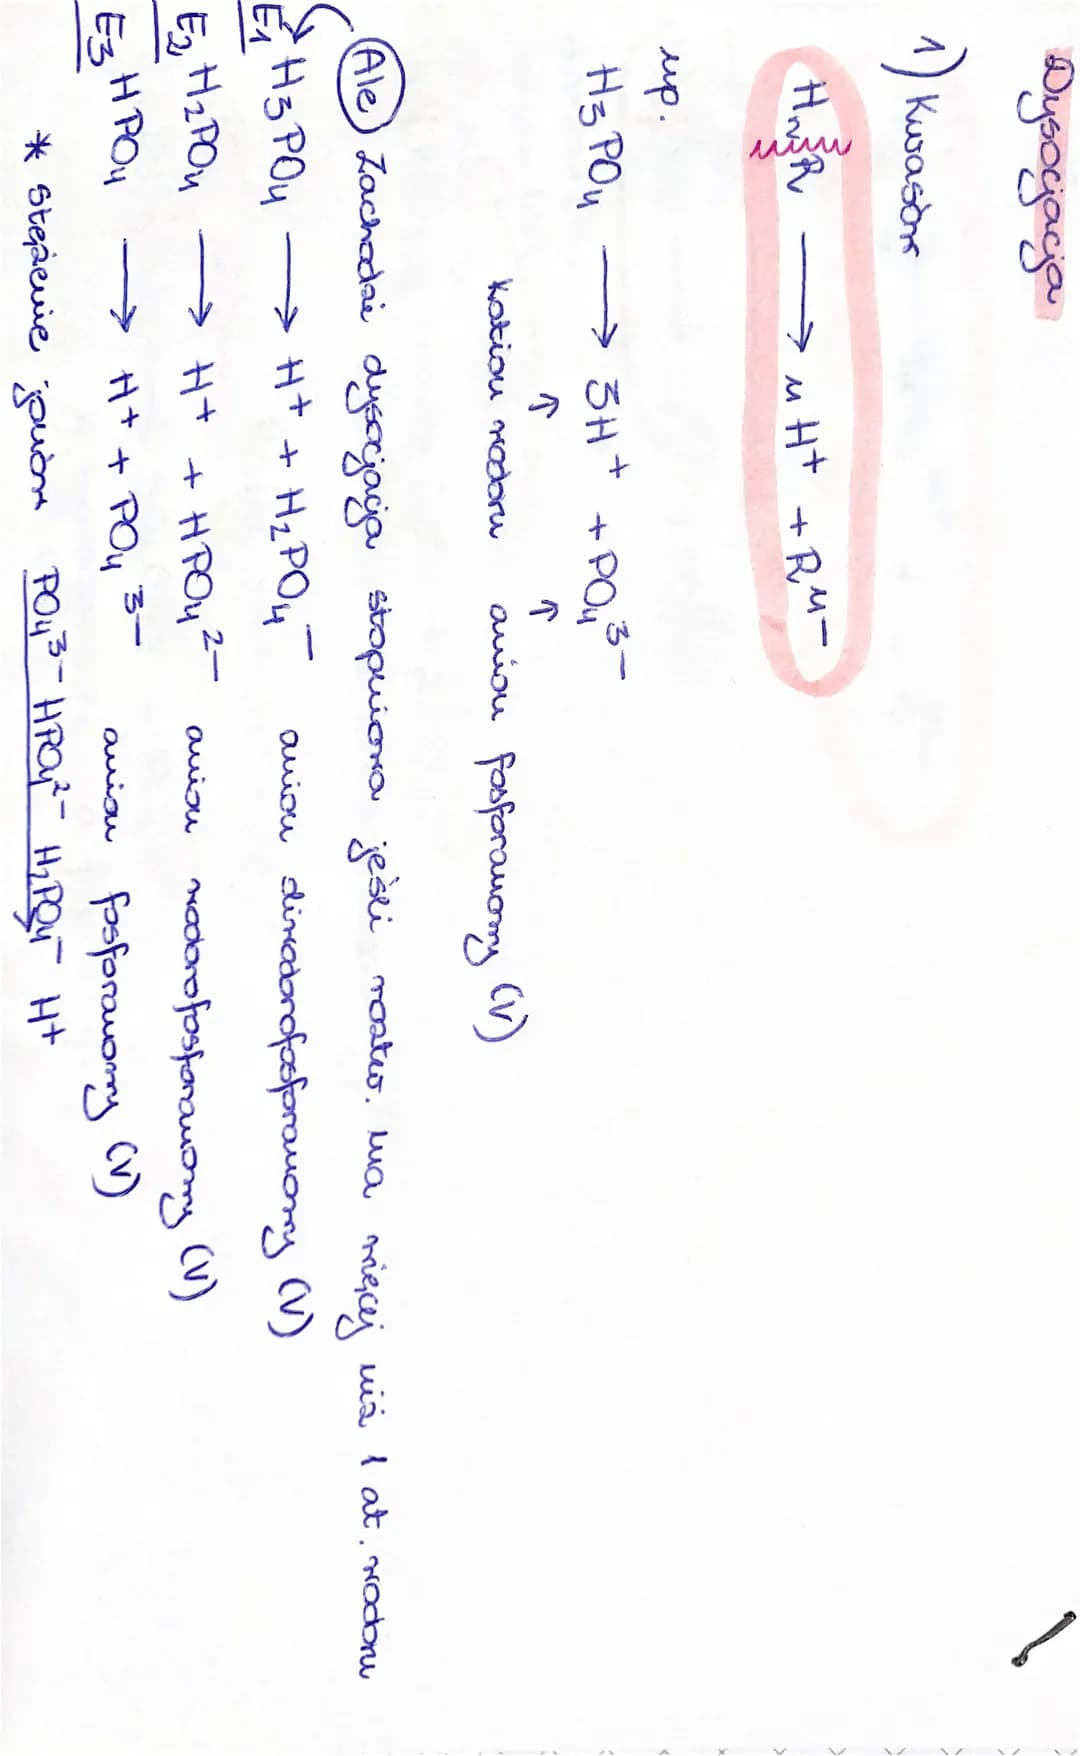 Dysocjacja
1) Kwasów
HnR → n H+ + R^n-
np.
H₃PO₄ → 3H⁺ + PO₄³⁻
↑ ↑
kation wodoru anion fosforanowy (V)
Ale Zachodzi dysocjacja stopniowa jeśli roztw. ma więcej niż 1 at. wodoru
E1 H₃PO₄ → H⁺ + H₂PO₄⁻ anion diwodorofosforanowy (V)
E2 H₂PO₄ → H⁺ + HPO₄²⁻ anion wodorofosforanowy (V)
E3 HPO₄ → H⁺ + PO₄³⁻ anion fosforanowy (V)
* stężenie jonów PO₄³⁻ HPO₄²⁻ H₂PO₄⁻ H⁺